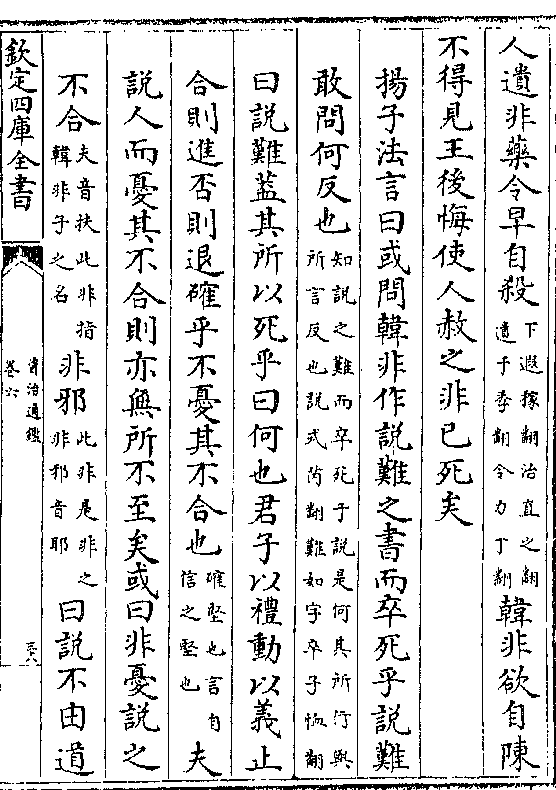 人遺非藥令早自殺下遐稼翻治直之翻遺于季翻令力丁翻韓非欲自陳
不得見王後悔使人赦之非已死矣
揚子法言曰或問韓非作說難之書而卒死乎說難
敢問何反也知說之難而卒死于說是何其所行與所言反也說式芮翻難如字卒子恤翻
曰說難蓋其所以死乎曰何也君子以禮動以義止
合則進否則退確乎不憂其不合也確堅也言自信之堅也夫
說人而憂其不合則亦無所不至矣或曰非憂說之
不合夫音扶此非指韓非子之名非邪此非是非之非邪音耶曰說不由道
欽定四庫全書
資治通鑑
卷六